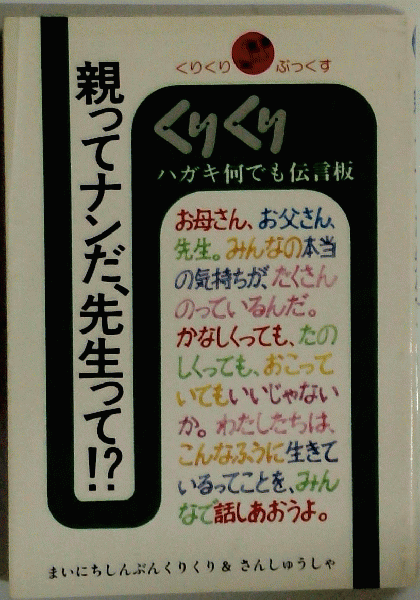 くりくり ぶっくす
くりくり
ハガキ何でも伝言板
親ってナンだ、先生って!?
お母さん、お父さん、
先生。みんなの本当
の気持ちが、たくさん
のっているんだ。
かなしくっても、たの
しくっても、おこって
いてもいいじゃない
か。わたしたちは、
こんなふうに生きて
いるってことを、みん
なで話しあおうよ。
まいにちしんぶんくりくり&さんしゅうしゃ